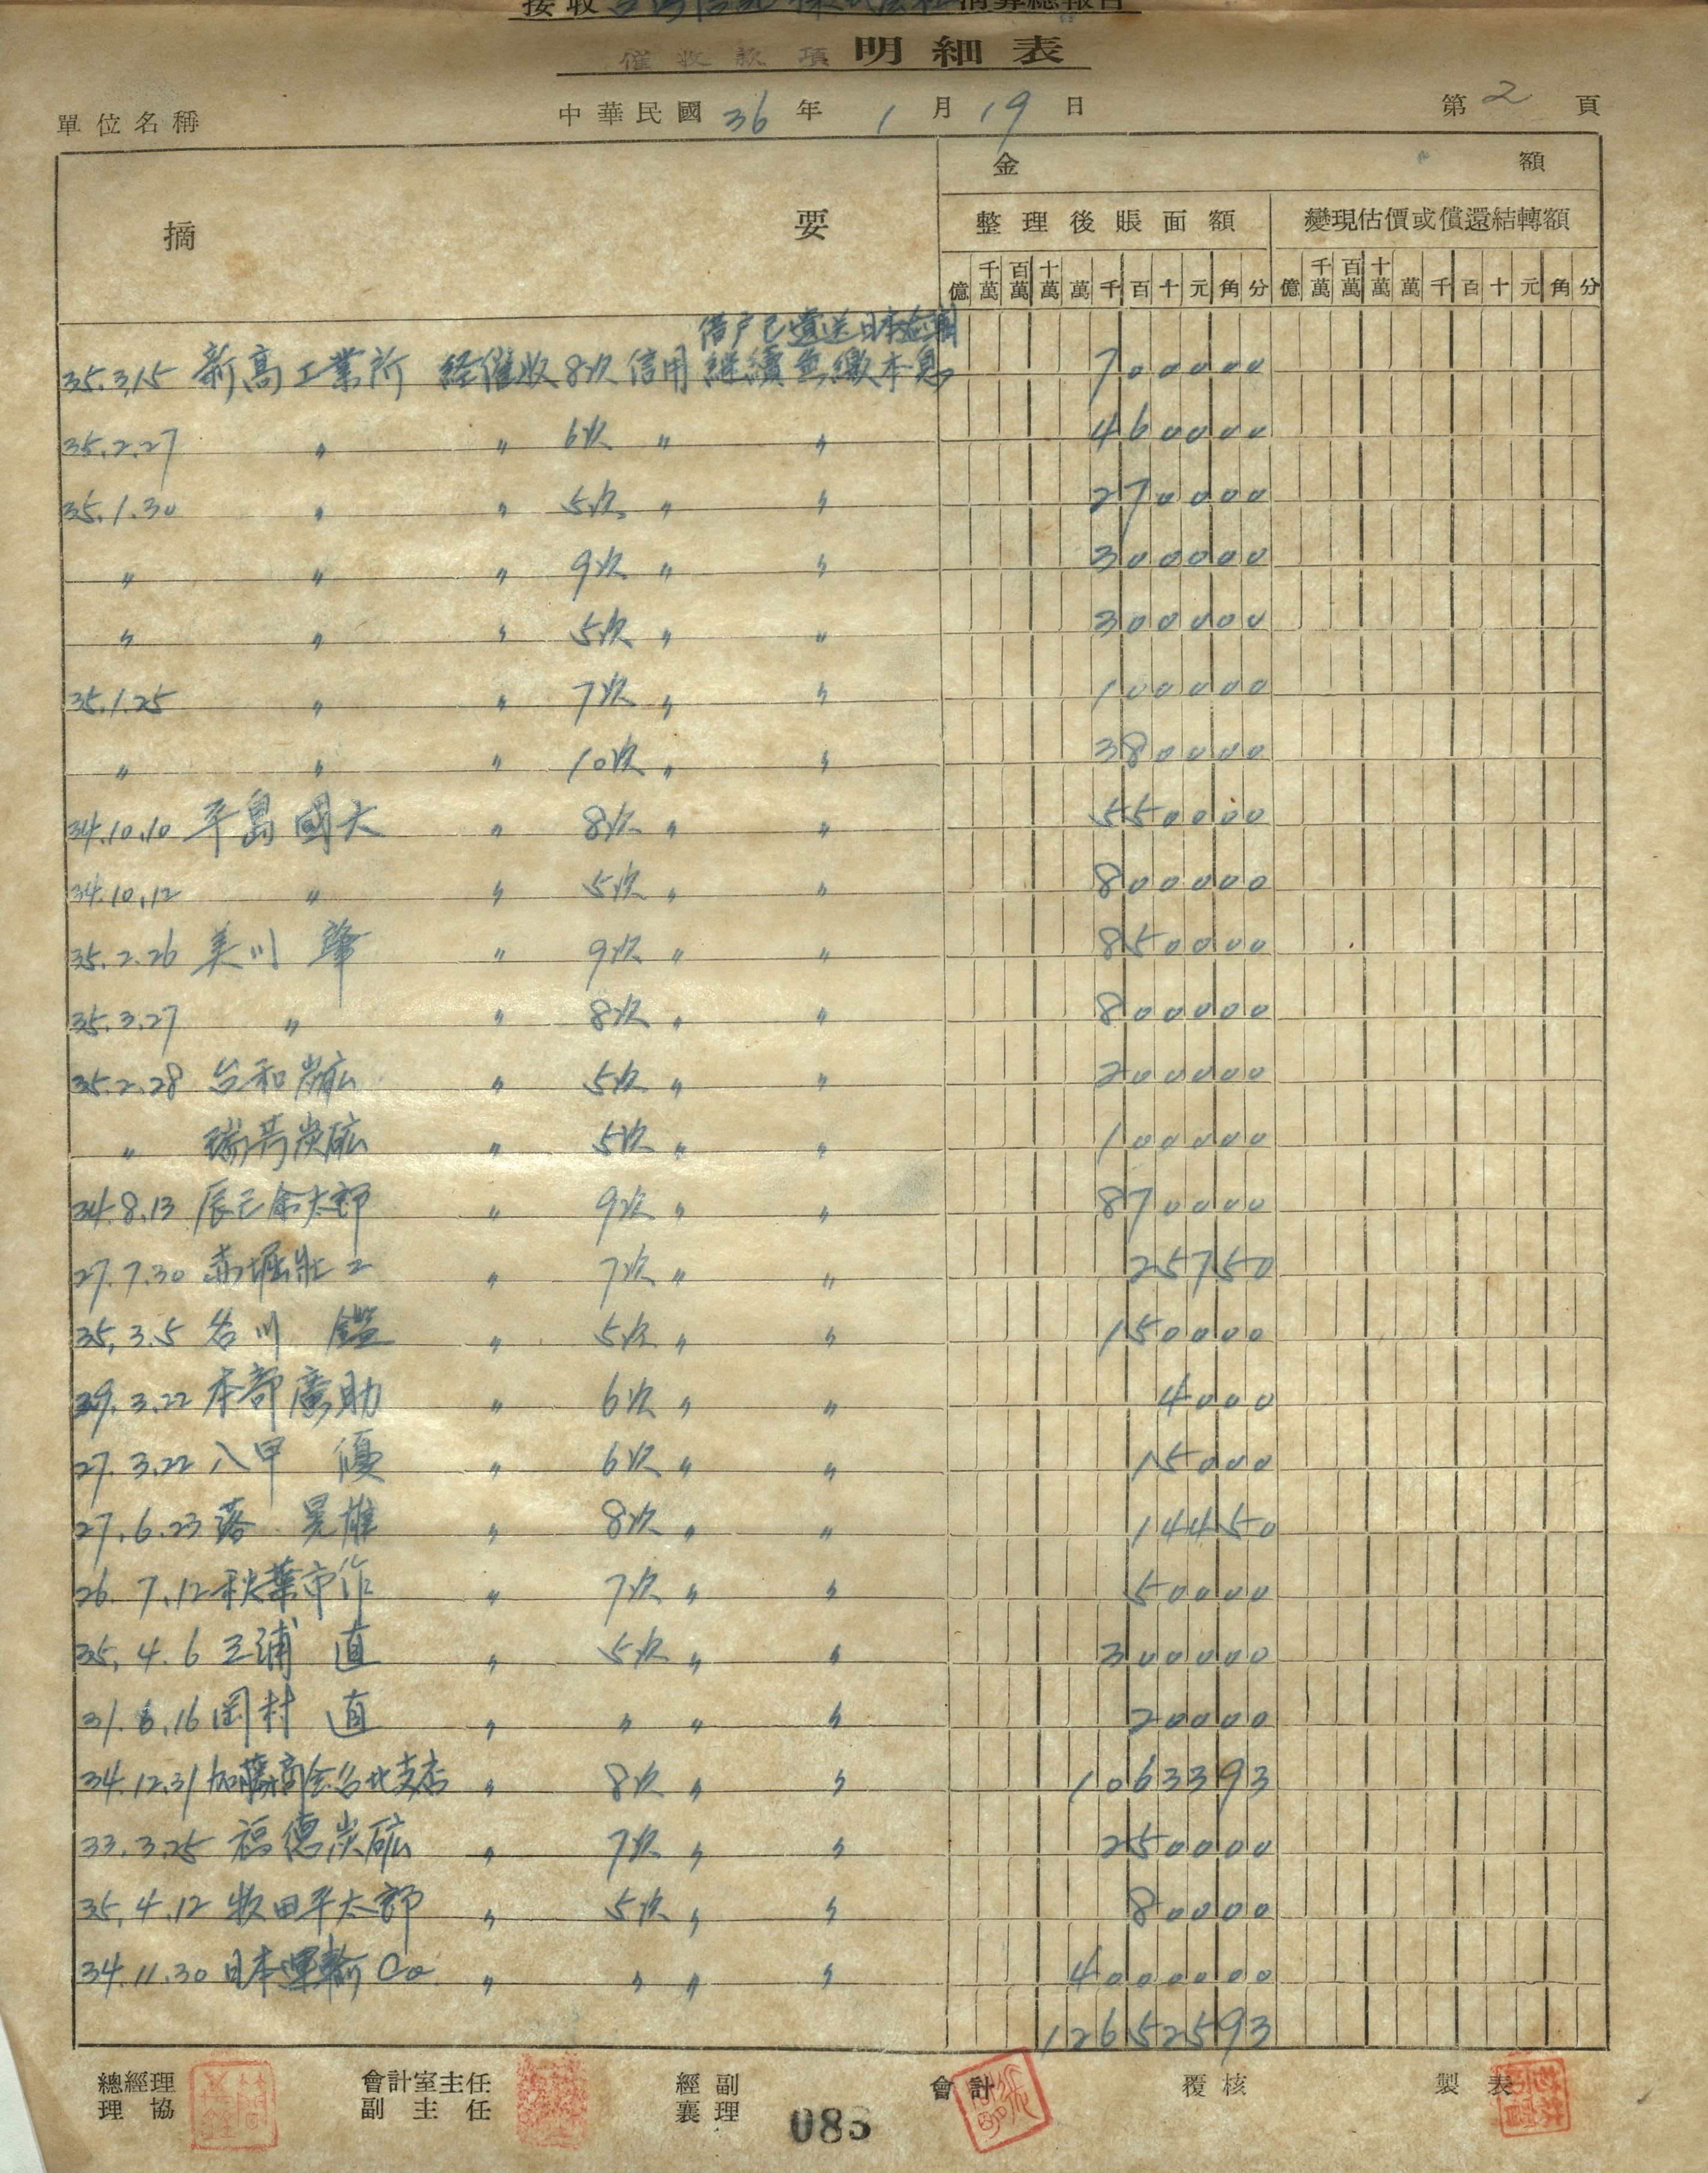 接收台灣信託株式會社清算總報告
催收款項明細表
單位名稱 中華民國36年1月19日 第2頁
摘要 金額
整理後賬面額 變現估價或償還結轉額
億 千萬 百萬 十萬 萬 千 百 十 元 角 分 億 千萬 百萬 十萬 萬 千 百 十 元 角 分
借户已遣送日本
35.3.15 新高工業所 経催收8次 信用 継續無繳本息 700000
35.2.27 〃 〃 6次 〃 〃 460000
35.1.30 〃 〃 5次 〃 〃 270000
〃 〃 〃 9次 〃 〃 300000
〃 〃 〃 5次 〃 〃 300000
35.1.25 〃 〃 7次 〃 〃 100000
〃 〃 〃 10次 〃 〃 380000
34.10.10 平島國大 〃 8次 〃 〃 550000
34.10.12 〃 〃 5次 〃 〃 800000
35.2.26 美川 肇 〃 9次 〃 〃 850000
35.3.27 〃 〃 8次 〃 〃 800000
35.2.28 台和炭砿 〃 5次 〃 〃 200000
〃 瑞芳炭砿 〃 5次 〃 〃 100000
34.8.13 辰己余太郎 〃 9次 〃 〃 870000
27.7.30 赤堀壯二 〃 7次 〃 〃 25750
35.3.5 谷川 鑑 〃 5次 〃 〃 150000
29.3.22 本部廣助 〃 6次 〃 〃 4000
27.3.22 八甲 優 〃 6次 〃 〃 15000
27.6.23 落 晃雄 〃 8次 〃 〃 14450
26.7.12 秋葉市作 〃 7次 〃 〃 50000
35.4.6 三浦 直 〃 5次 〃 〃 300000
31.8.16 岡村 直 〃 〃 〃 〃 20000
34.12.31 加藤商会台北支店 〃 8次 〃 〃 1063393
33.3.25 福德炭砿 〃 7次 〃 〃 250000
35.4.12 牧田平太郎 〃 5次 〃 〃 80000
34.11.30 日本運輸Co 〃 〃 〃 〃 4000000
12652593
總經理 會計室主任 經副 會計 覆核 製表
理協 副主任 襄理
083